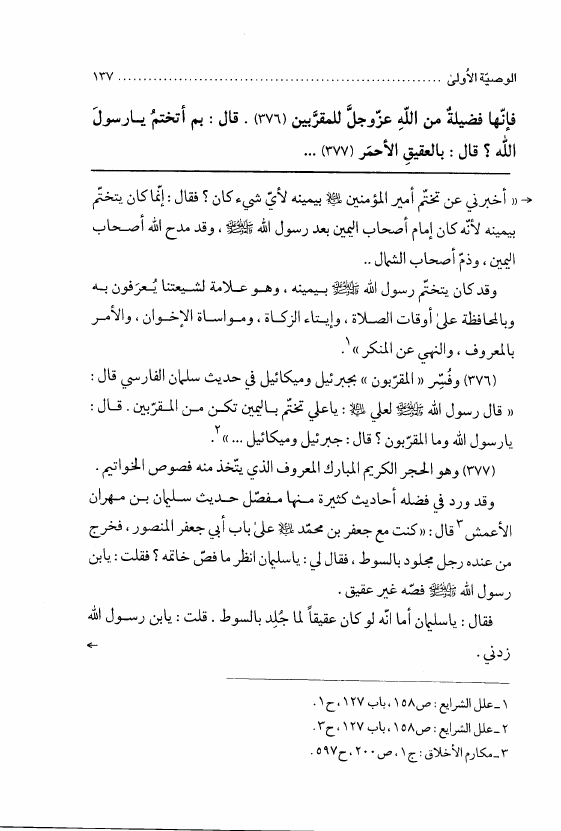 الوصيّة الأُولىٰ ................................................................ ١٣٧
فإنّها فضيلةٌ من اللّهِ عزّوجلَّ للمقرَّبين (٣٧٦) . قال : بم أتختمُ يـارسولَ
اللّه ؟ قال : بالعقيقِ الأحمَر (٣٧٧) ...
→ « أخبرني عن تختّم أمير المؤمنين ﵇ بيمينه لأيّ شيء كان ؟ فقال : إنّما كان يتختّم
بيمينه لأنّه كان إمام أصحاب اليمين بعد رسول الله ﷺ ، وقد مدح الله أصـحاب
اليمين ، وذمّ أصحاب الشمال ..
وقد كان يتختّم رسول الله ﷺ بـيمينه ، وهـو عـلامة لشـيعتنا يُـعرَفون بـه
وبالمحافظة علىٰ أوقات الصـلاة ، وإيـتاء الزكـاة ، ومـواسـاة الإخـوان ، والأمـر
بالمعروف ، والنهي عن المنكر »١.
(٣٧٦) وفُسِّر « المقرّبون » بجبرئيل وميكائيل في حديث سلمان الفارسي قال :
« قال رسول الله ﷺ لعلي ﵇ : ياعلي تختّم بـاليمين تكـن مـن المـقرّبين . قـال :
يارسول الله وما المقرّبون ؟ قال : جبرئيل وميكائيل ... »٢.
(٣٧٧) وهو الحجر الكريم المبارك المعروف الذي يتّخذ منه فصوص الخواتيم .
وقد ورد في فضله أحاديث كثيرة مـنها مـفصّل حـديث سـليمان بـن مـهران
الأعمش٣ قال : « كنت مع جعفر بن محمّد ﵇ علىٰ باب أبي جعفر المنصور ، فخرج
من عنده رجل مجلود بالسوط ، فقال لي : ياسليمان انظر ما فصّ خاتمه ؟ فقلت : يابن
رسول الله ﷺ فصّه غير عقيق .
فقال : ياسليمان أما انّه لو كان عقيقاً لما جُلِد بالسوط . قلت : يابن رسـول الله
زدني . ←
١ ـ علل الشرايع : ص١٥٨ ، باب ١٢٧ ، ح١.
٢ ـ علل الشرايع : ص١٥٨ ، باب ١٢٧ ، ح٣.
٣ ـ مكارم الأخلاق : ج١ ، ص٢٠٠ ، ح٥٩٧.